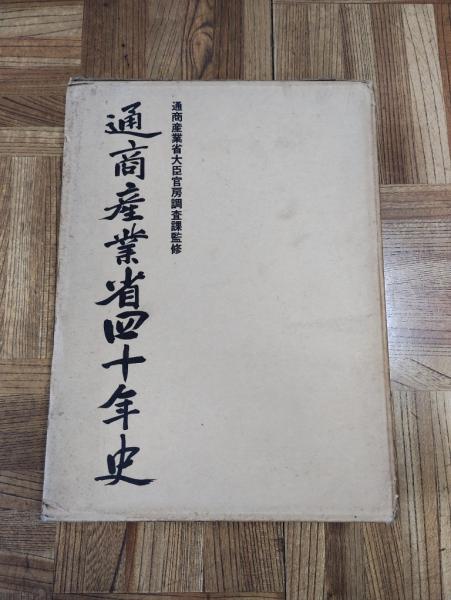 通商産業省大臣官房調査課監修
通商産業省四十年史